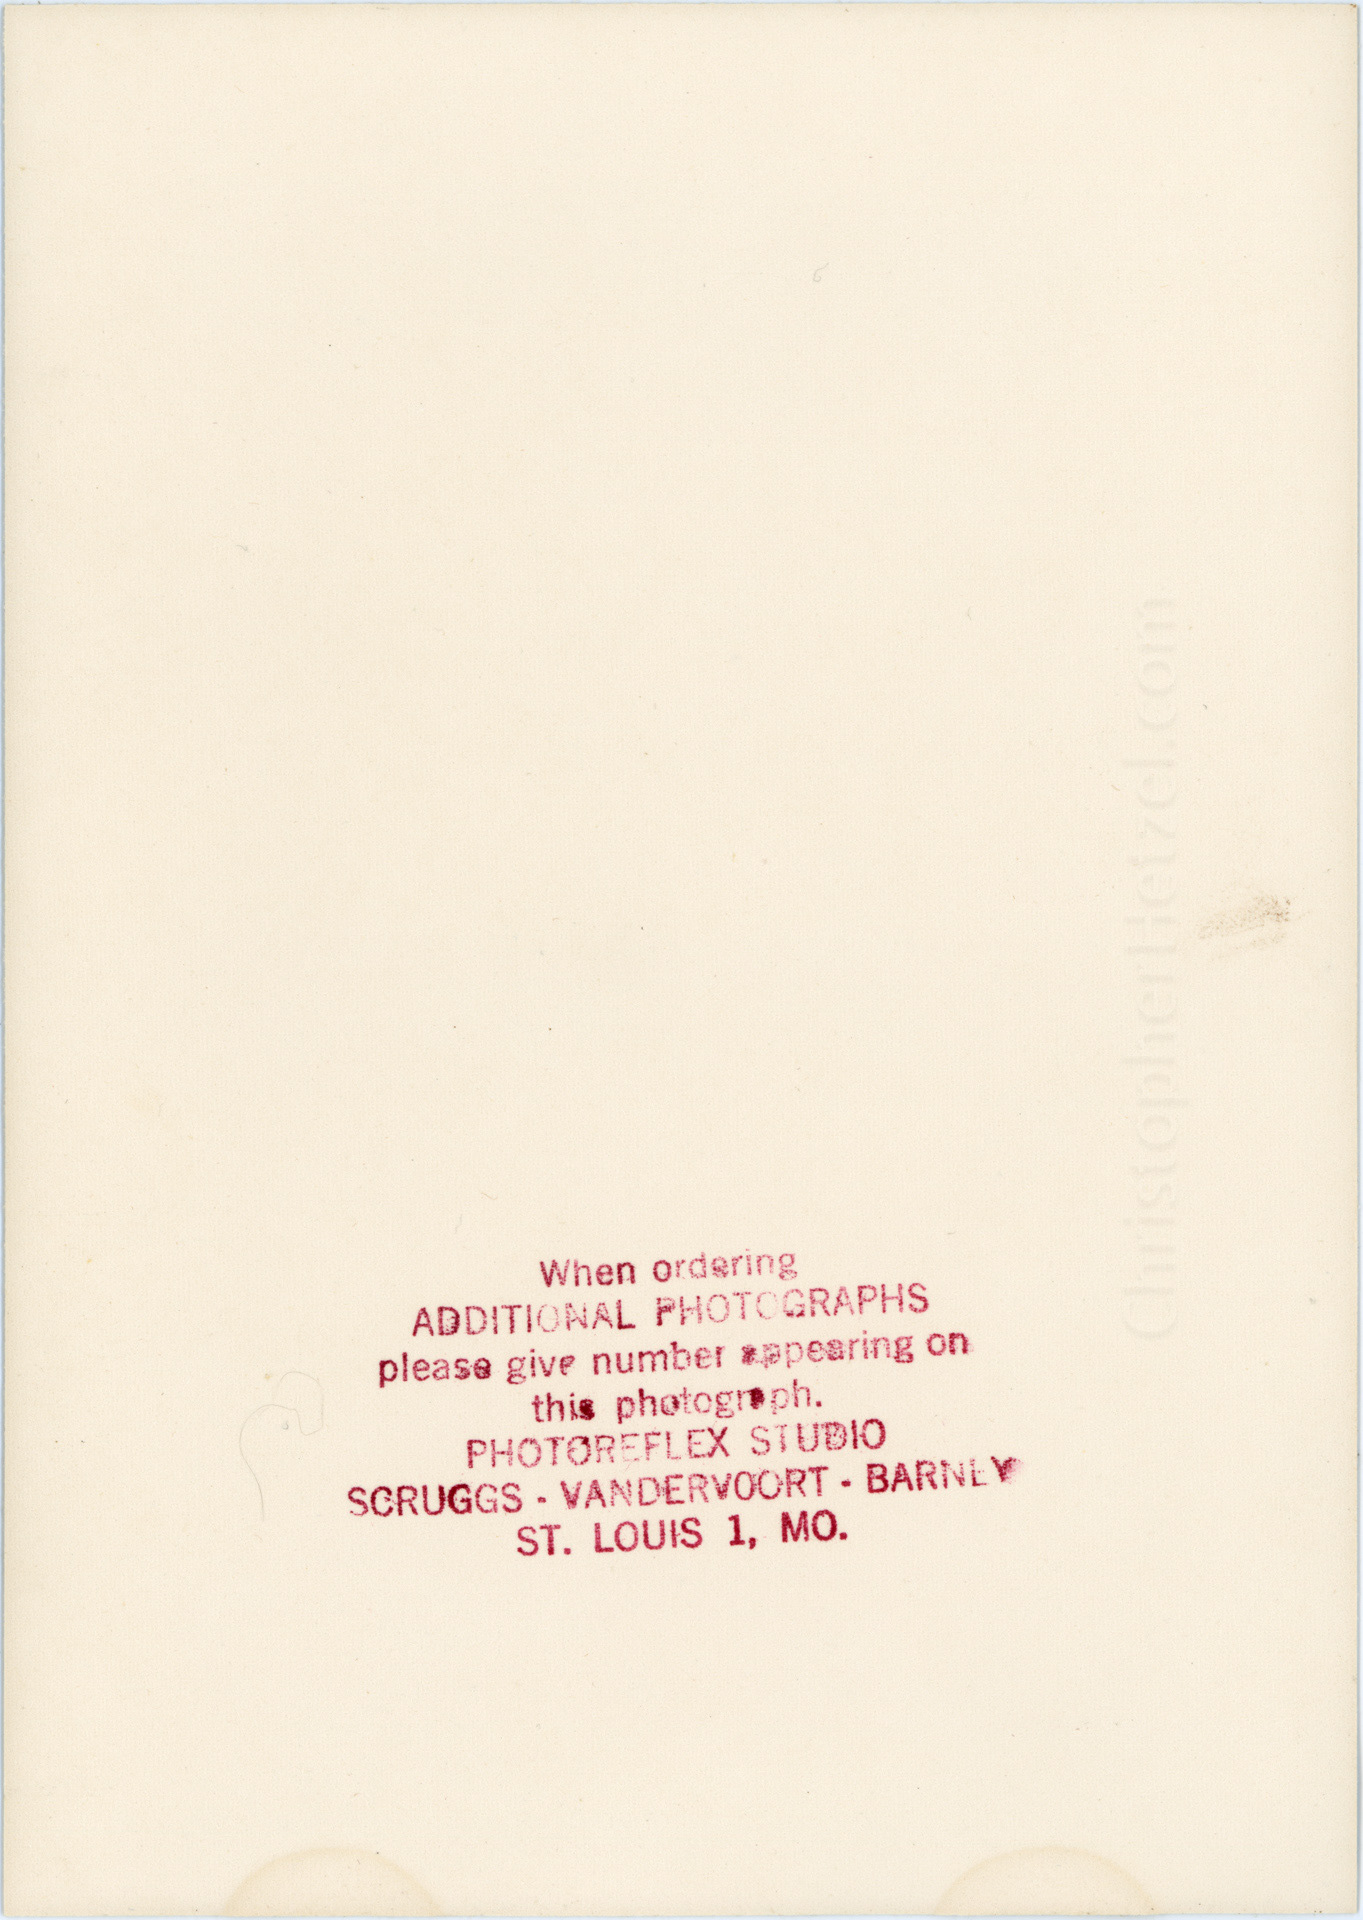 When ordering
ADDITIONAL PHOTOGRAPHS
please give number appearing on
this photograph.
PHOTOREFLEX STUDIO
SCRUGGS - VANDERVOORT - BARNEY
ST. LOUIS 1, MO.
ChristopherHetzel.com